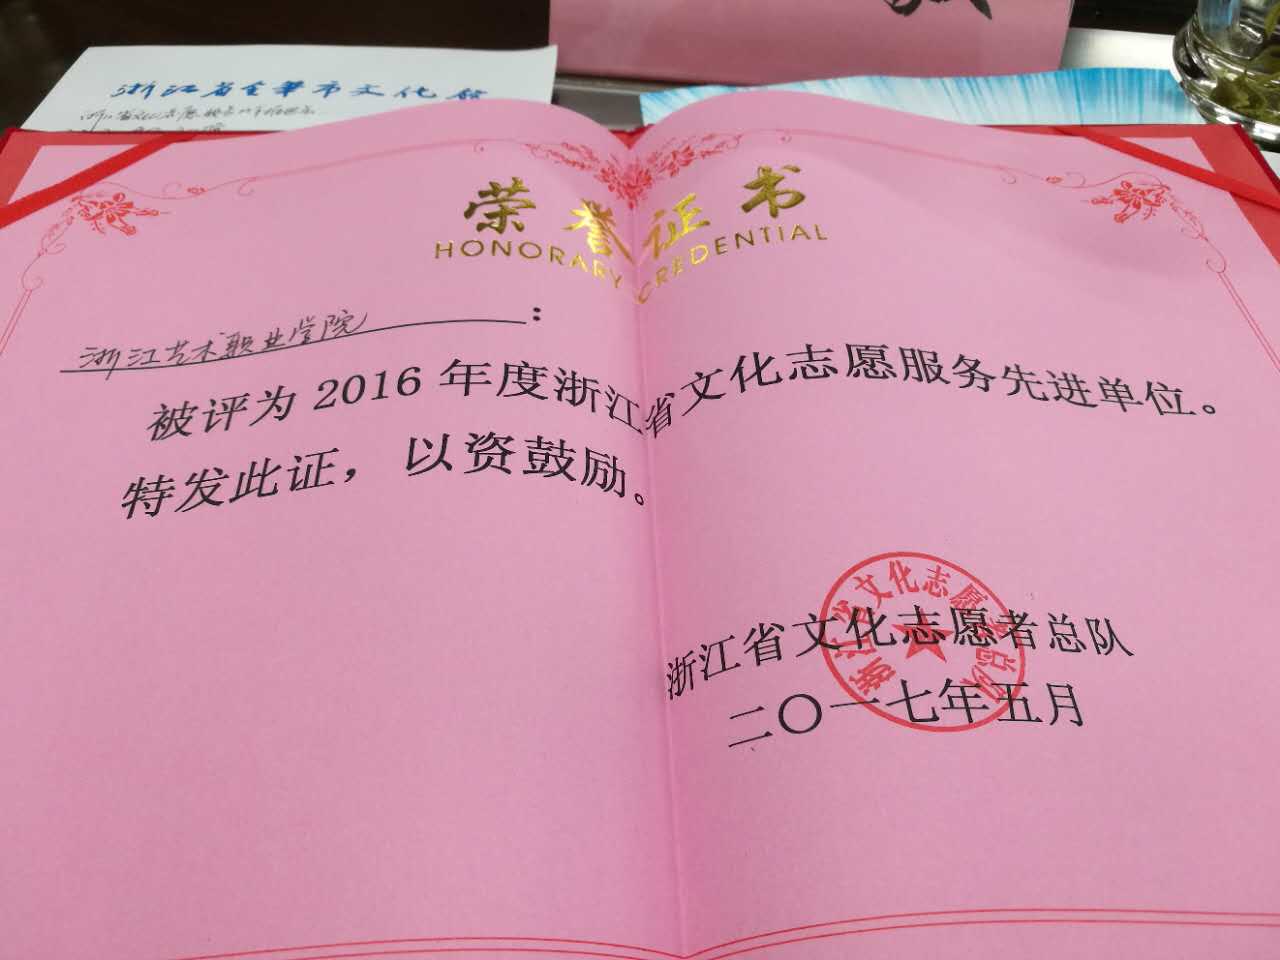 浙江省金华市文化馆
荣誉证书
HONORARY CREDENTIAL
浙江艺术职业学院：
被评为2016年度浙江省文化志愿服务先进单位。
特发此证，以资鼓励。
浙江省文化志愿者总队
浙江省文化志愿者总队
二〇一七年五月